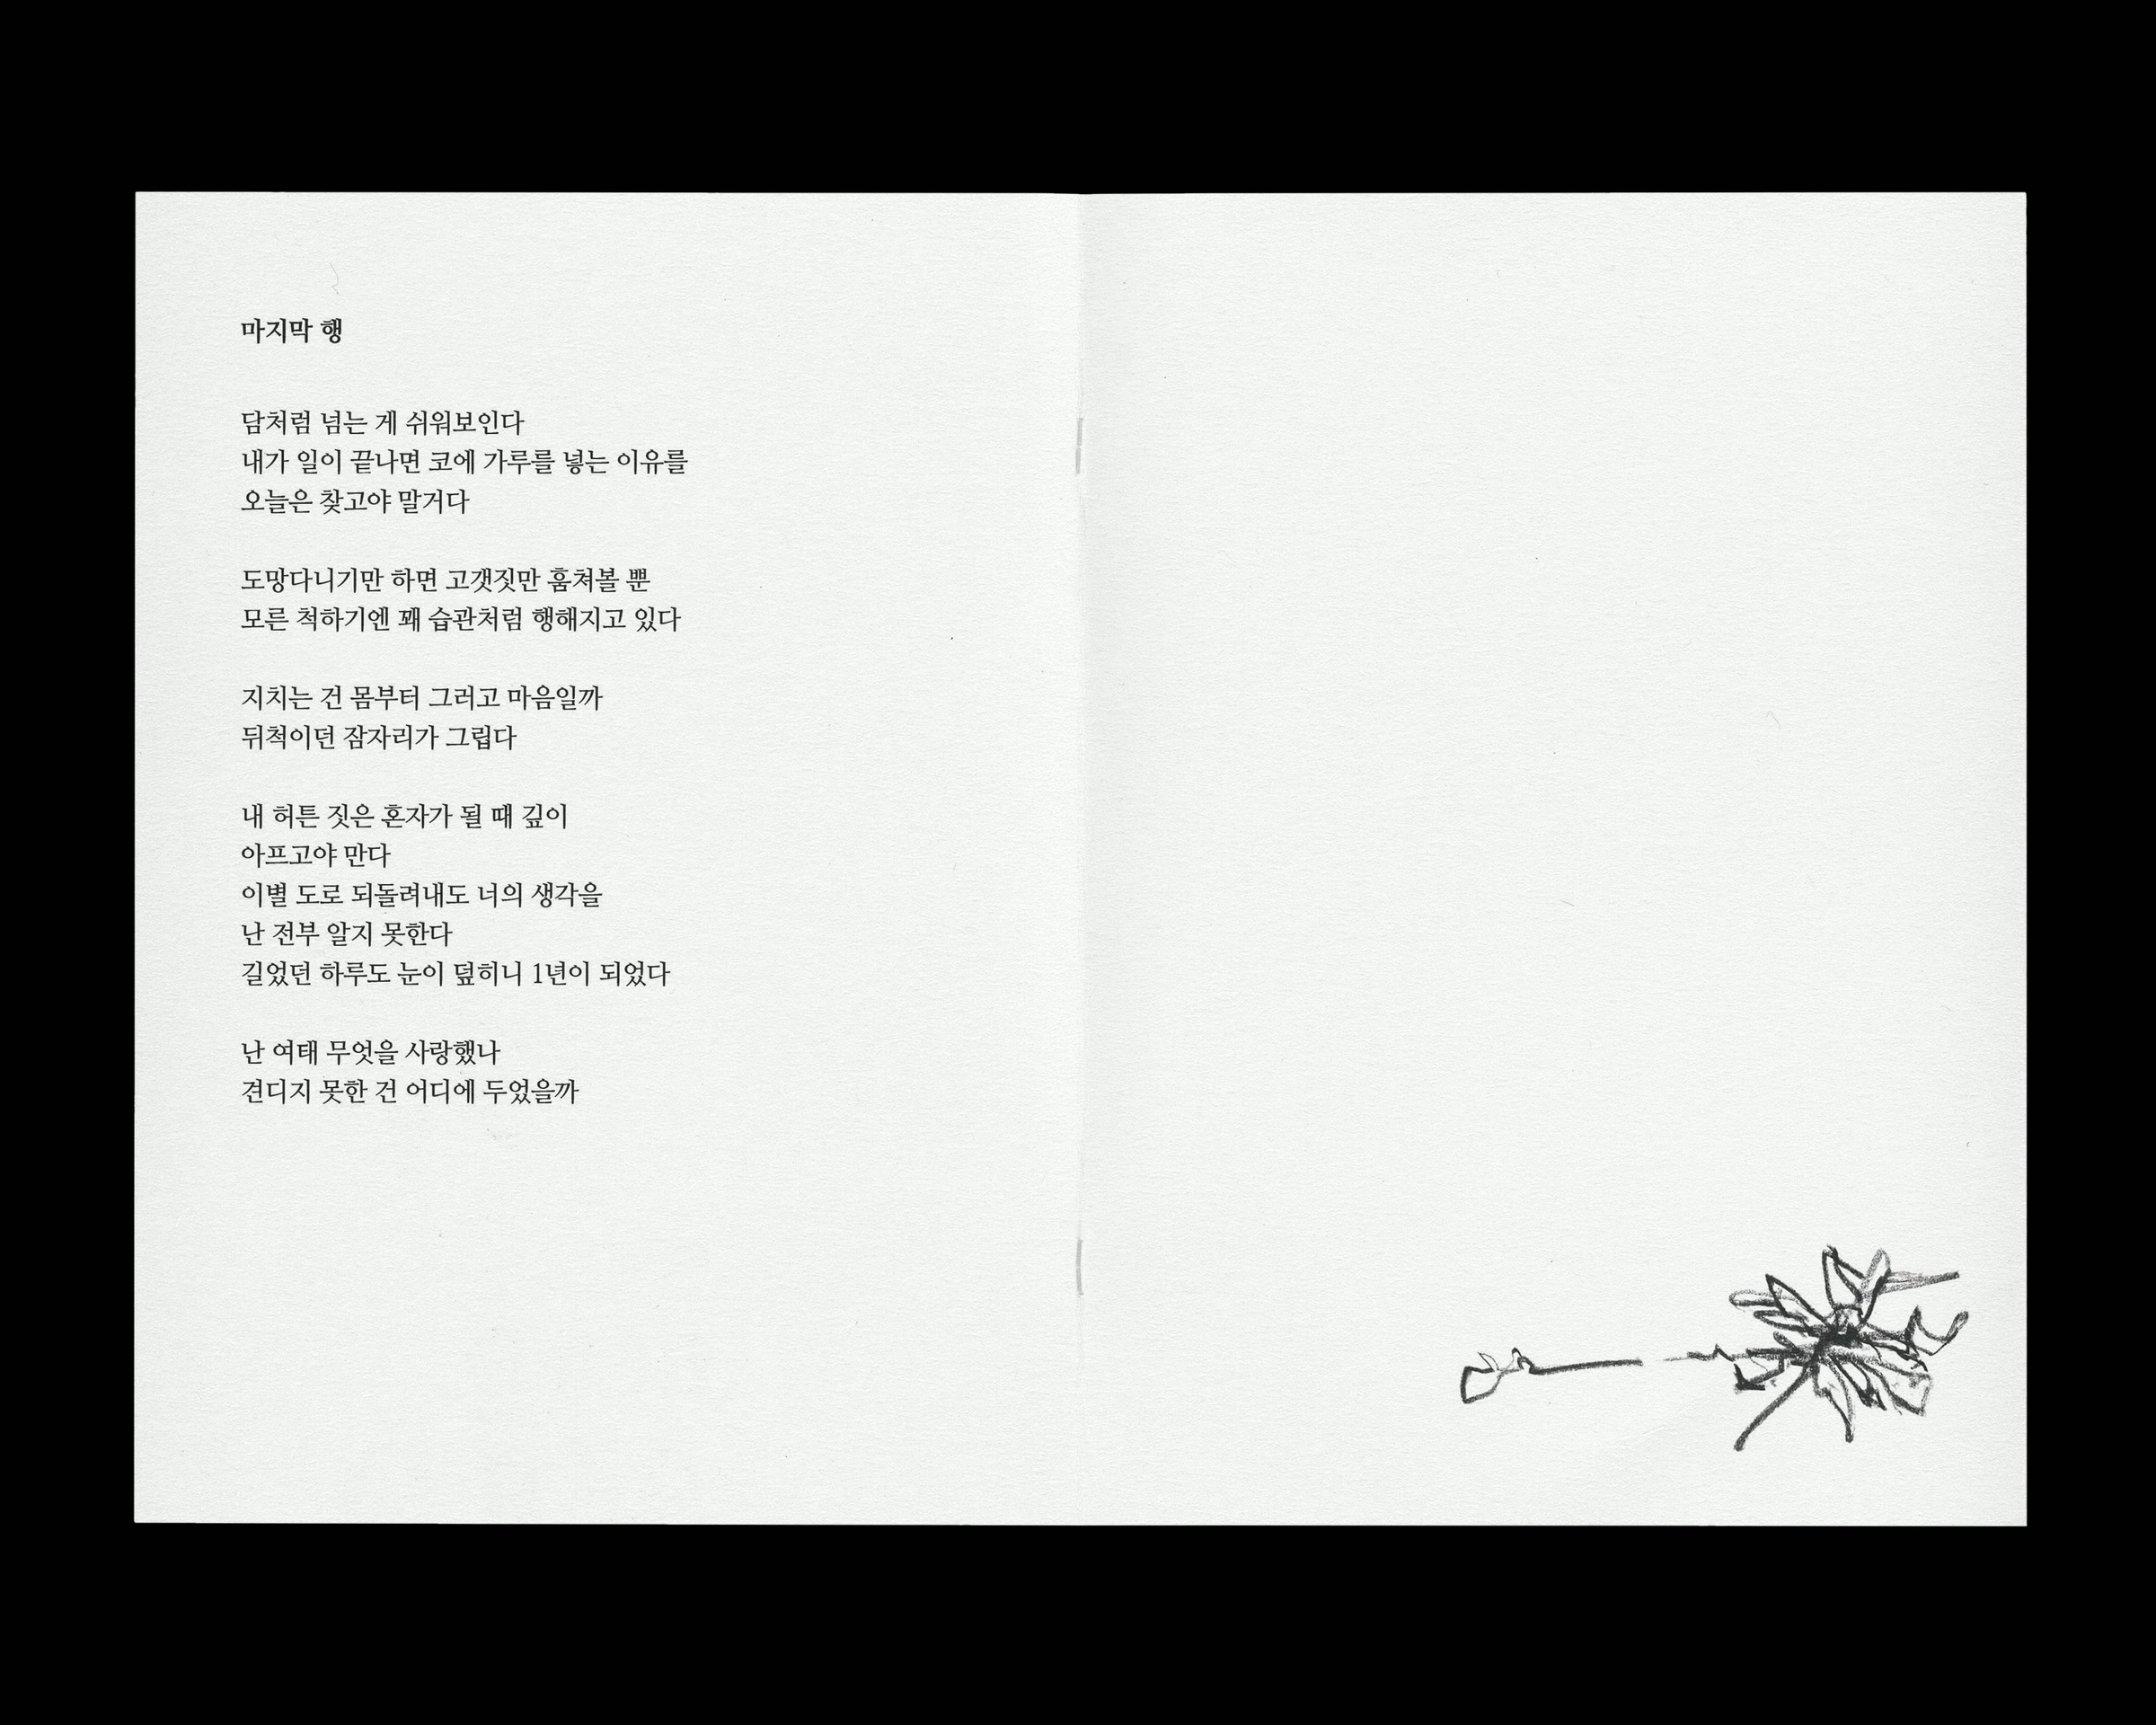 마지막 행
담처럼 넘는 게 쉬워보인다
내가 일이 끝나면 코에 가루를 넣는 이유를
오늘은 찾고야 말거다
도망다니기만 하면 고갯짓만 훔쳐볼 뿐
모른 척하기엔 꽤 습관처럼 행해지고 있다
지치는 건 몸부터 그러고 마음일까
뒤척이던 잠자리가 그립다
내 허튼 짓은 혼자가 될 때 깊이
아프고야 만다
이별 도로 되돌려내도 너의 생각을
난 전부 알지 못한다
길었던 하루도 눈이 덮히니 1년이 되었다
난 여태 무엇을 사랑했나
견디지 못한 건 어디에 두었을까